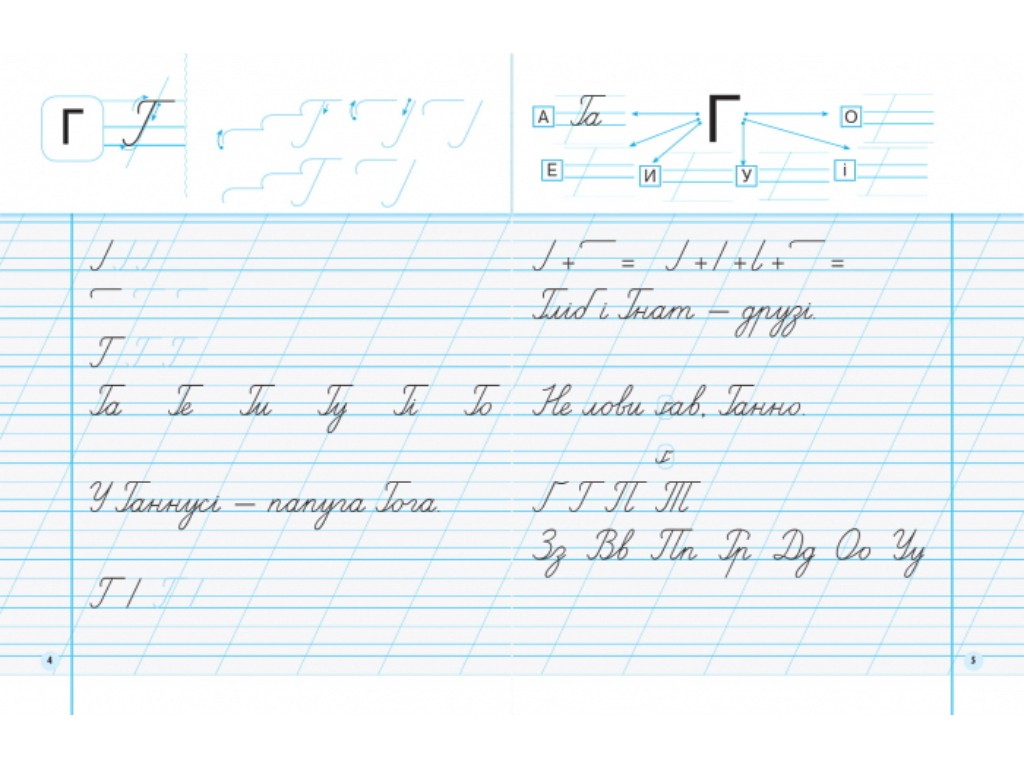 Г Г
А Га Г О
Е И У і
Г Г Г
Га Ге Ги Гу Гі Го
У Ганнусі — папуга Гога.
Г І П І
4
+ = + + + =
Гліб і Гнат — друзі.
Не лови гав, Ганно.
г
Ґ Г П Т
Зз Вв Пп Рр Дд Оо Уу
5